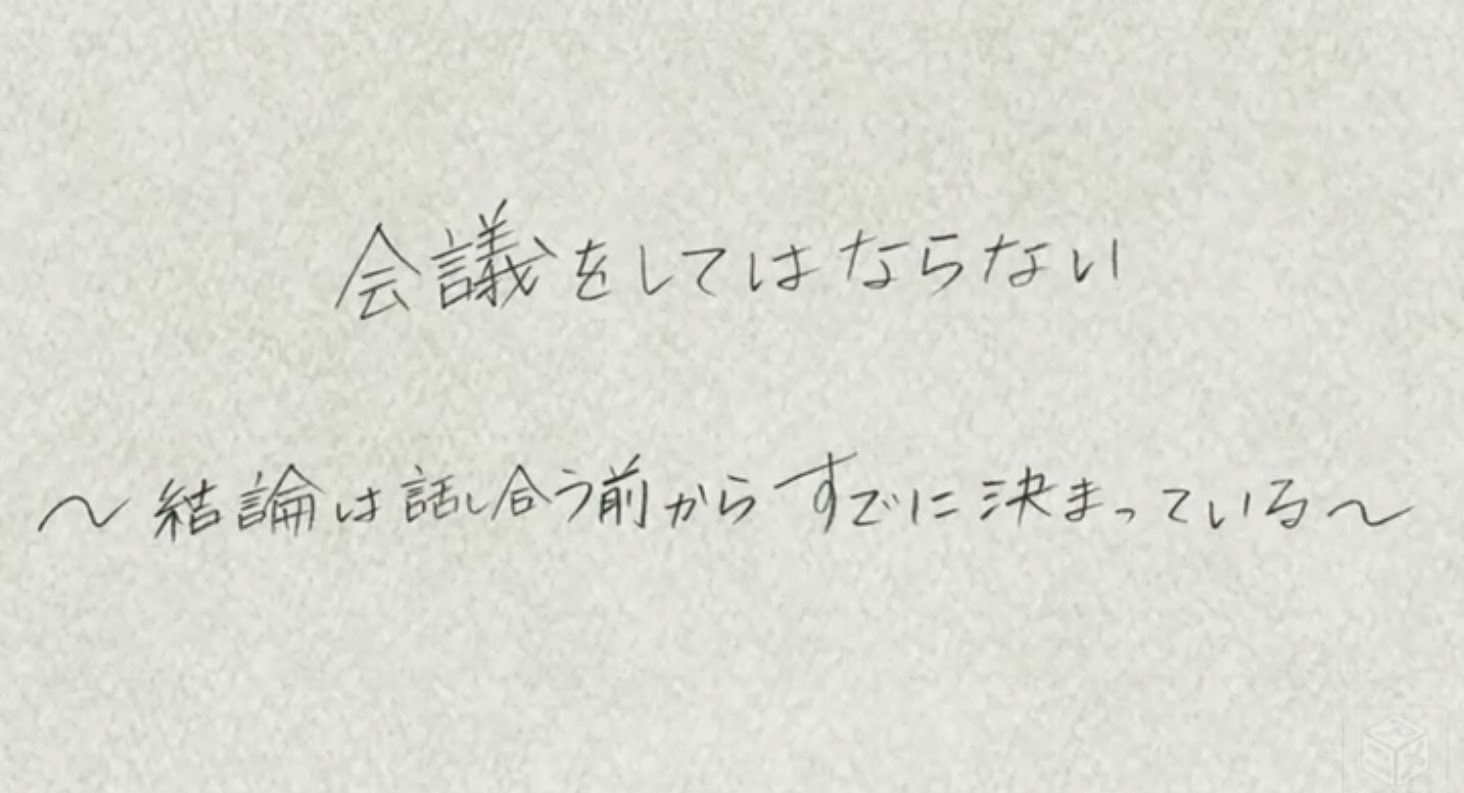 会議をしてはならない
～結論は話し合う前からすでに決まっている～